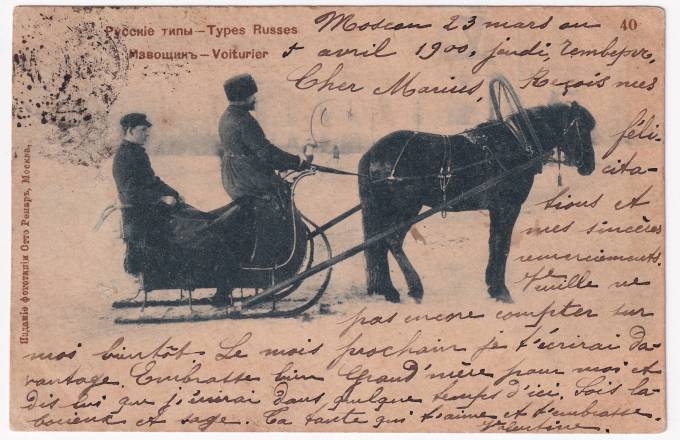 Русскіе типы – Types Russes
Извощикъ – Voiturier
40
Изданіе фототипіи Отто Ренаръ, Москва.
Moscou 23 mars ou
5 avril 1900, jeudi, Четвергъ,
Cher Marius, Reçois mes
féli-
cita-
tions et
mes sincères
remerciements.
Veuille ne
pas encore compter sur
moi bientôt. Le mois prochain je t'écrirai da-
vantage. Embrasse bien Grand'mère pour moi et
dis lui que j'irai dans quelque temps d'ici. Sois la-
borieux et sage. Ta tante qui t'aime et t'embrasse.
Valentine.